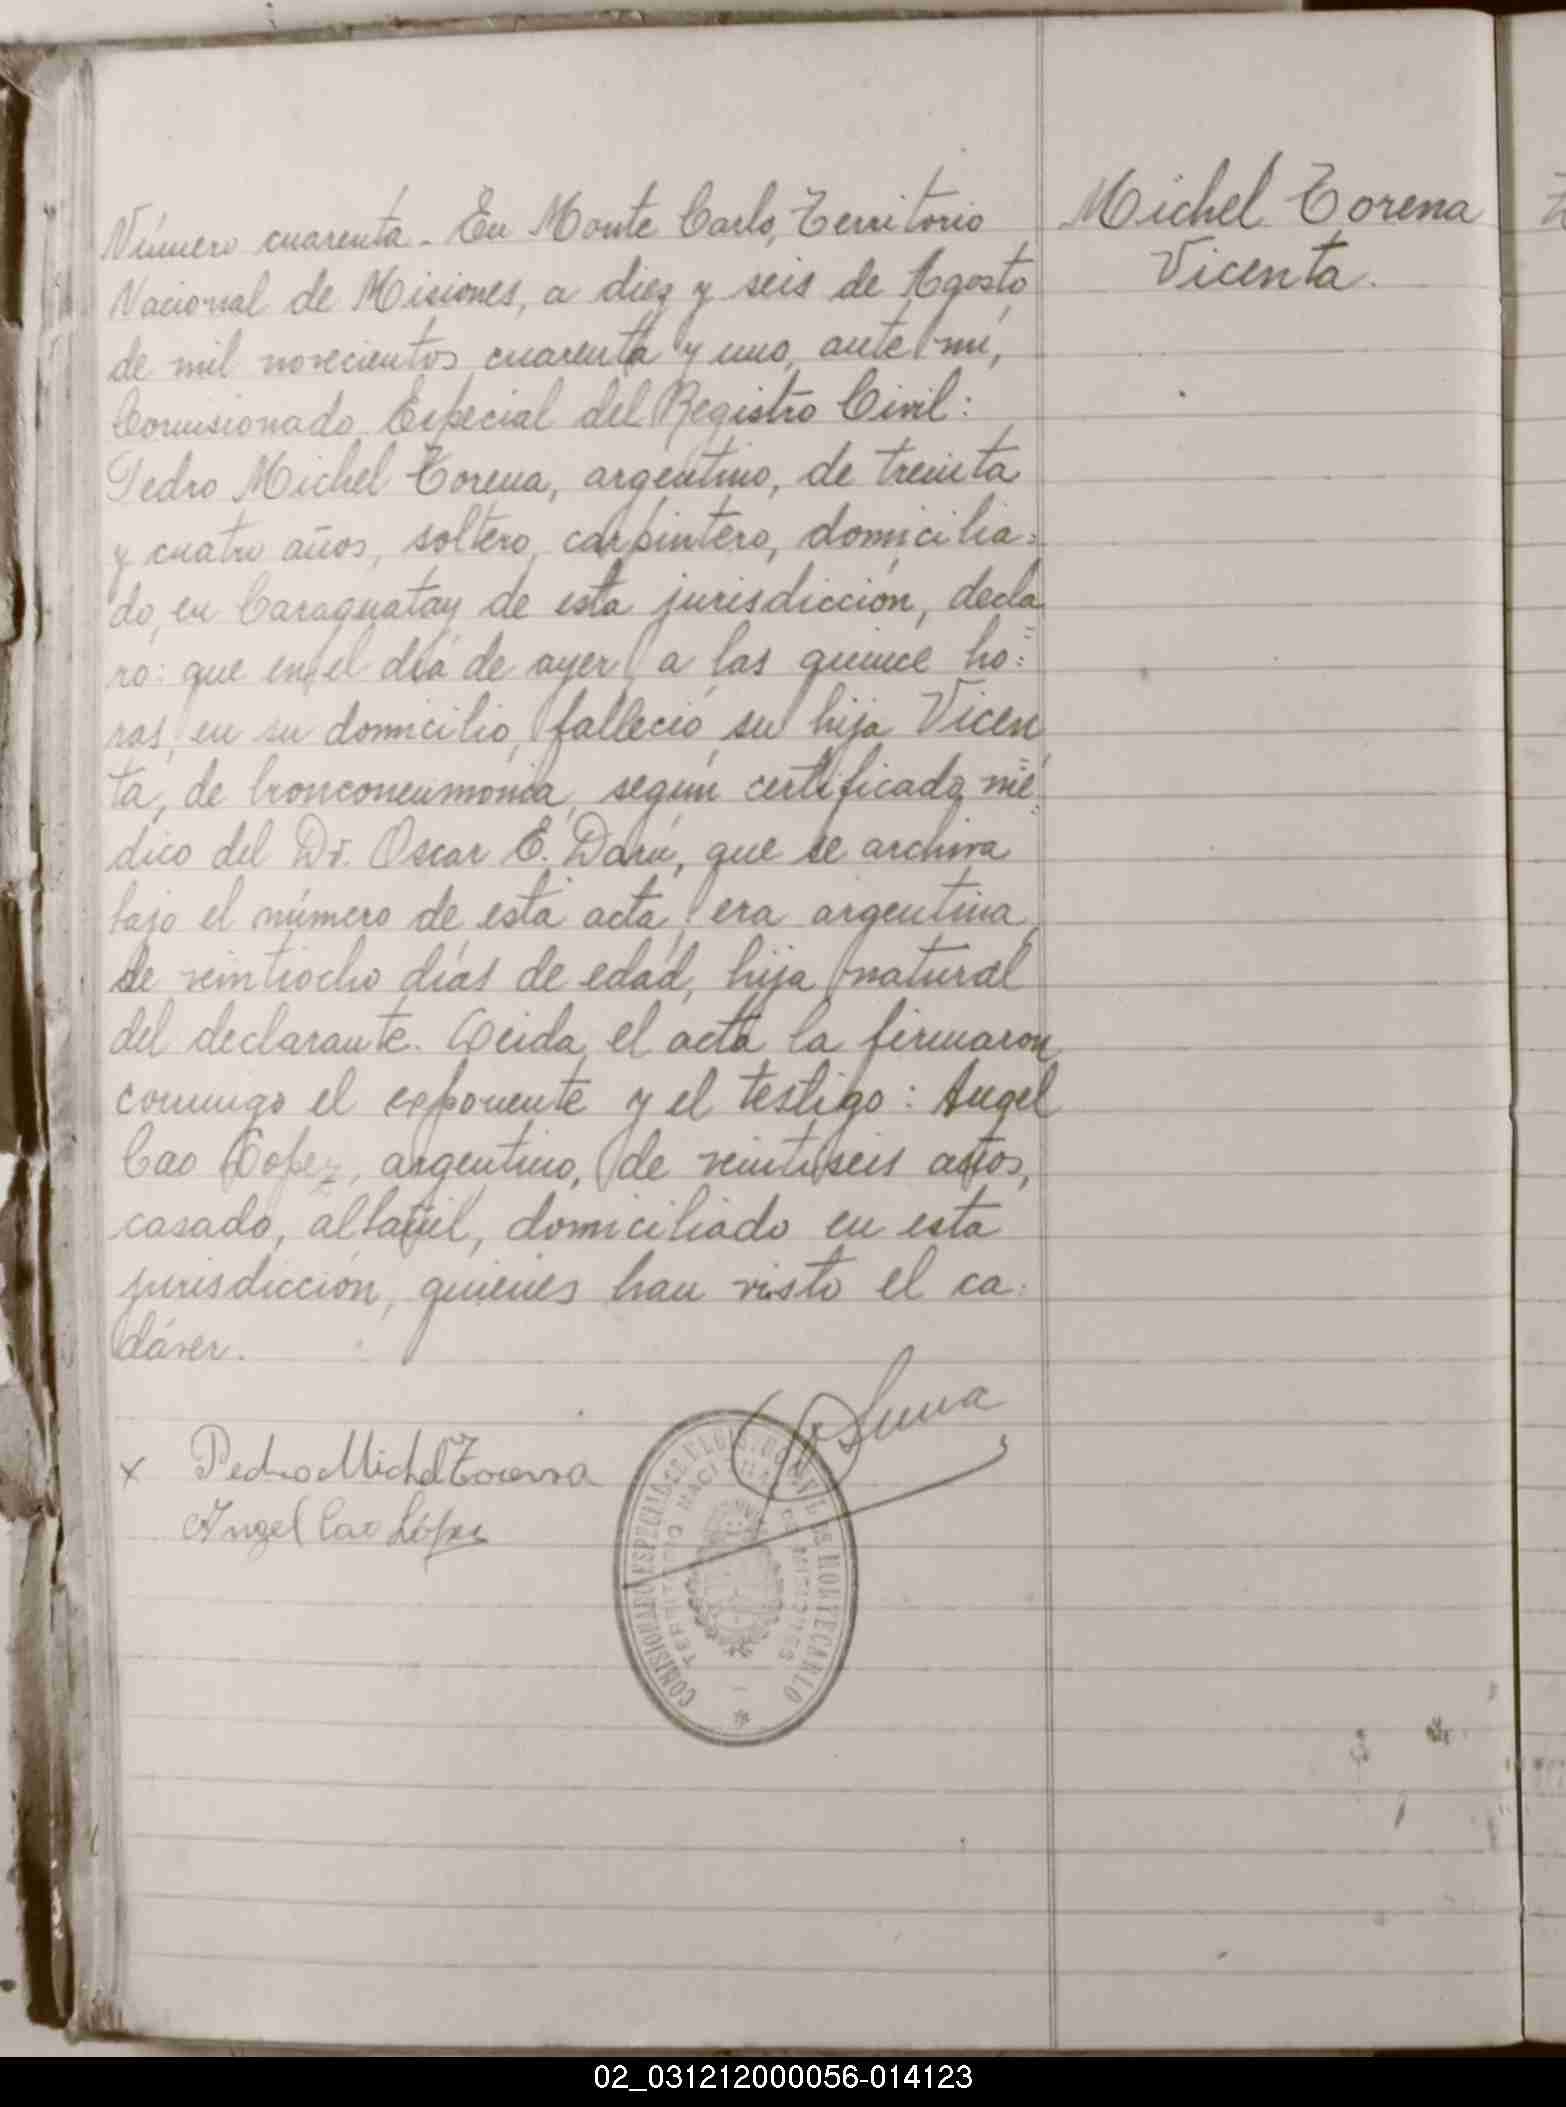 Número cuarenta - En Monte Carlo, Territorio
Nacional de Misiones, a diez y seis de Agosto
de mil novecientos cuarenta y uno, ante mí,
Comisionado Especial del Registro Civil:
Pedro Michel Torena, argentino, de treinta
y cuatro años, soltero, carpintero, domicilia=
do, en Caraguatay de esta jurisdicción, decla=
ro: que en el día de ayer, a las quince ho=
ras, en su domicilio, falleció su hija Vicen=
ta, de bronconeumonía, según certificado mé=
dico del Dr. Oscar E. Darú, que se archiva
bajo el número de esta acta; era argentina,
de veintiocho días de edad, hija natural
del declarante. Leida el acta la firmaron
conmigo el exponente y el testigo: Angel
Cao Lopez, argentino, de veintiseis años,
casado, albañil, domiciliado en esta
jurisdicción, quienes han visto el ca=
dáver.
Michel Torena
Vicenta.
x Pedro Michel Torena
Angel Cao López
Luna
COMISIONADO ESPECIAL DE REGIS. CIVIL DE MONTECARLO
TERRITORIO NACIONAL DE MISIONES
02_031212000056-014123